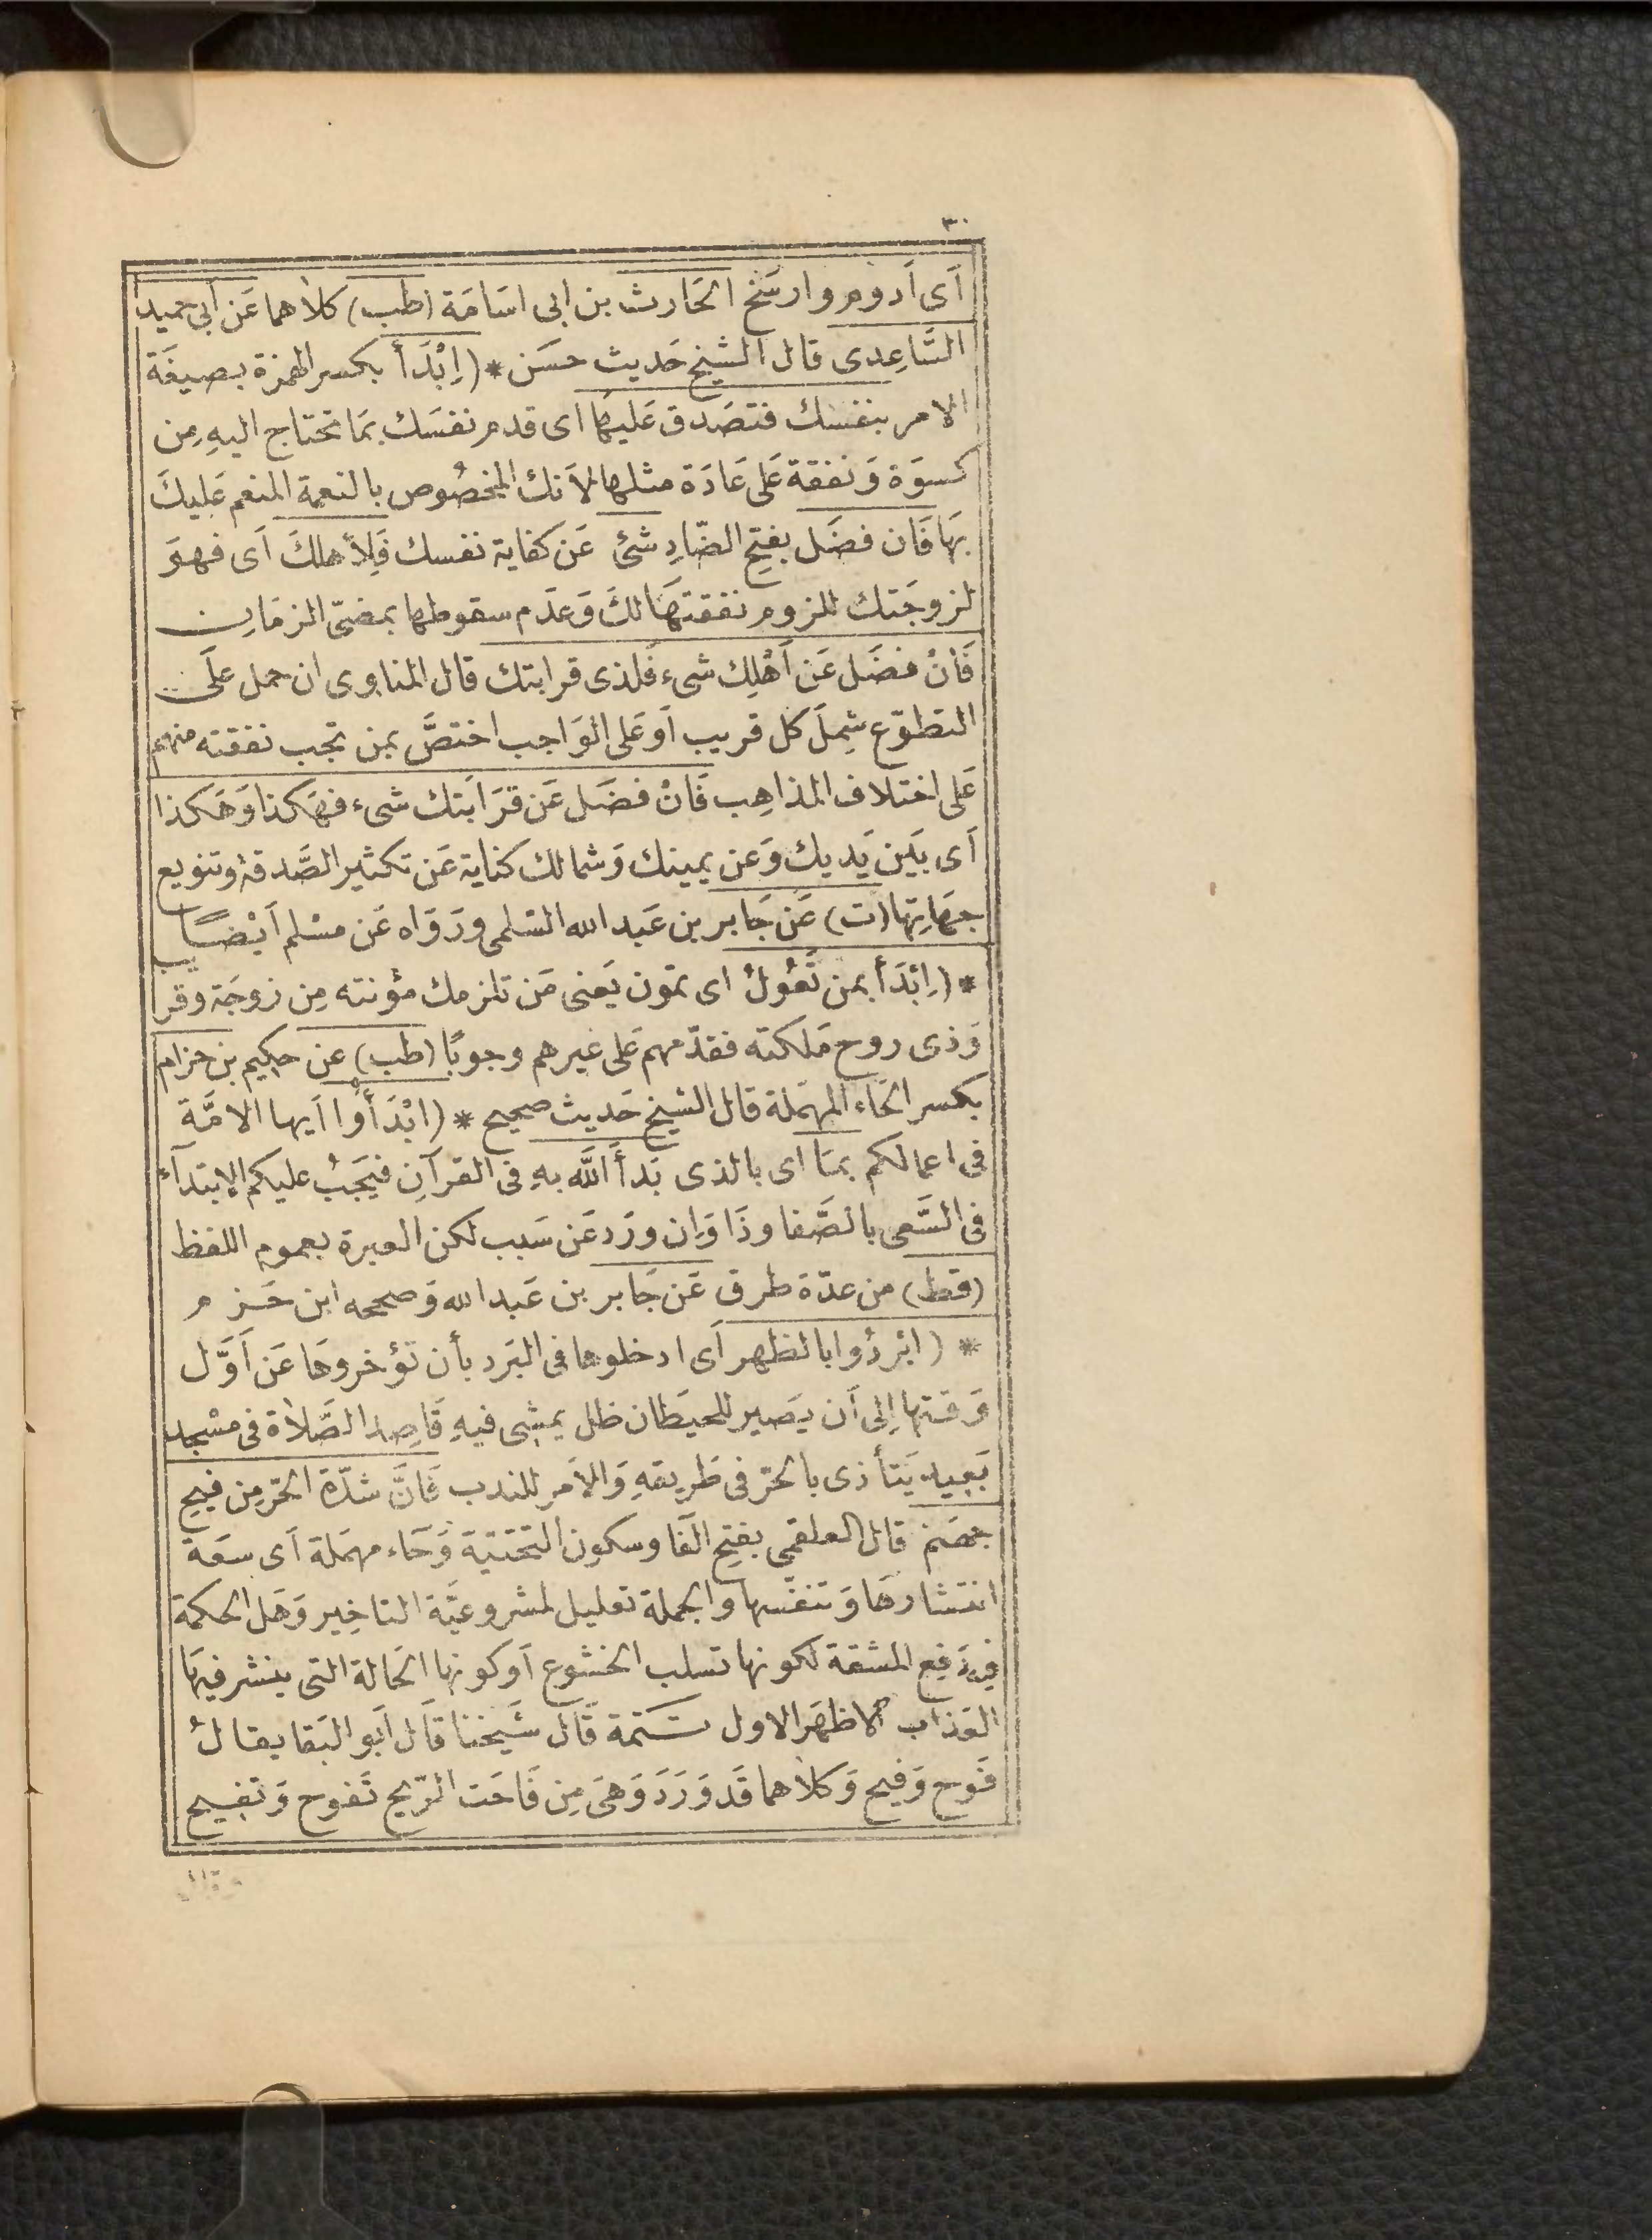 ٣٠
اَى اَدوم وارسَخ الحَارث بن ابى اسَامَة (طب) كلاهما عَن ابى حميد
السَّاعِدى قال الشيخ حَديث حسَن * (اِبْدَأ بكسر الهمزة بصيغَة
الامر بنفسك فتصَدق عَليها اى قدم نفسَك بمَا تحتاج اليهِ مِن
كسوَة وَنفقة عَلى عَادَة مثلها لاَنك المخصُوص بالنعمة المنعم عَليكَ
بهَا فَان فضَل بفتح الضّادِ شئ عَن كفاية نفسك فَلِاَهلكَ اَى فهوَ
لزوجَتك للزوم نفقتهَا لكَ وَعدَم سقوطها بمضىّ الزمَان
فَاِنْ فضَل عَن اَهْلِك شىء فَلذى قرابتك قال المناوى ان حمل عَلَى
التطوّع شِملَ كل قريب اَو عَلى الوَاجب اختصَّ بمن تجب نفقته منهم
عَلى اختلاف المذاهِب فَاِنْ فضَل عَن قرَابَتك شىء فهَكذا وَهَكذا
اَى بَين يَديك وَعن يمينك وَشمالك كناية عَن تكثير الصَّدقة وتنويع
جهَاتِهَا (ت) عَن جَابر بن عَبد الله السّلمى ورَوَاه عَن مسْلم اَيْضًا
* (اِبْدَأ بمن تَعُولُ اى تمون يَعنى مَن تلزمك مؤنته مِن زوجَة وقريب
وَذى روح مَلكته فقدّمهم عَلى غيرهم وجوبًا (طب) عن حكيم بن حزام
بكسر الحَاء المهمَلة قال الشيخ حَديث صحيح * (ابْدَأُوا اَيها الامَّة
فى اعمالكم بمَا اى بالذى بَدأ اللَّه بهِ فى القرآنِ فيَجَبُ عليكم الابتدآء
فى السَّعى بالصَّفا وذَا وَاِن ورَد عَن سَبب لكن العبرة بعموم اللفظ
(قط) من عدّة طرق عَن جَابر بن عَبد الله وَصححه ابن حَزم
* (ابْردُوا بالظهر اَى ادخلوها فى البَرد بأن تؤخروهَا عَن اَوَّل
وَقتها اِلى اَن يَصير للحيَطان ظل يمشى فيهِ قَاصِد الصَّلاة فى مسْجد
بَعيد يَتأذى بالحرّ فى طَريقهِ وَالاَمر للندب فَانَّ شدّة الحرّ مِن فيح
جهَنم قال العلقمى بفتح الفَا وسكون التحتيَة وَحَاء مهمَلة اَى سعَة
انتشارهَا وَتنفّسها والجملة تعليل لمشروعيَّة التاخِير وَهَل الحكمة
فِيهِ دَفع المشقة لكونها تسلب الخشوع اَو كونها الحَالة التى ينشر فيهَا
العَذاب الاظهَر الاول تتمة قَال شَيخنا قَال اَبو البَقا يقالُ
فَوح وَفيح وَكلاهما قَد وَرَدَ وَهىَ مِن فَاحَت الرّيح تَفوح وَتفيح